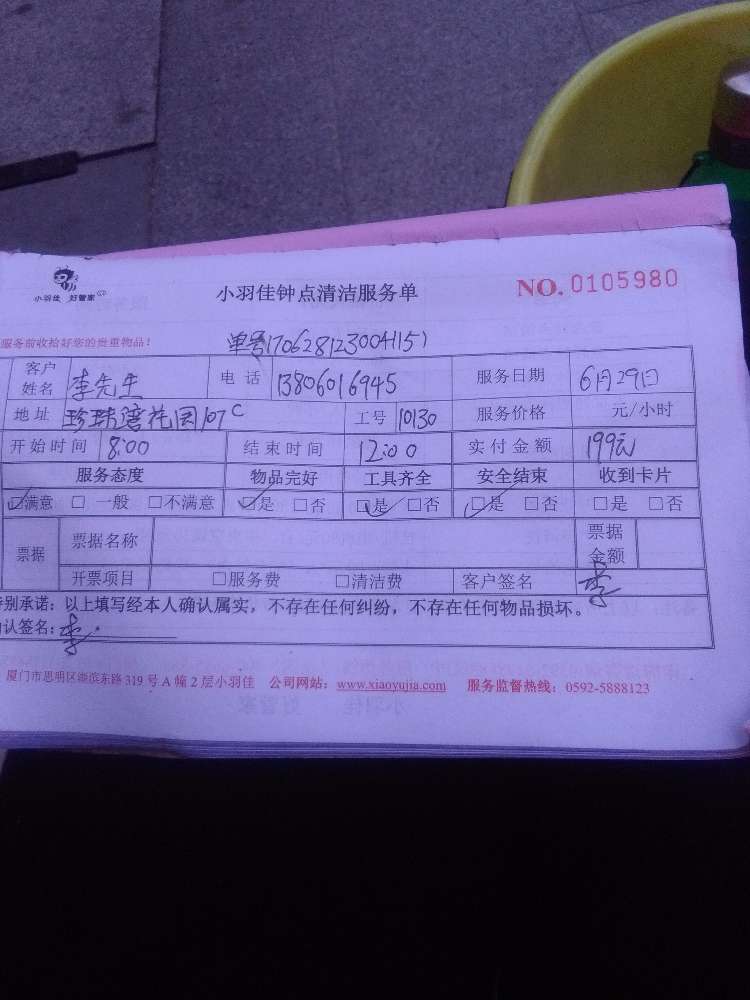 小羽佳 好管家
小羽佳钟点清洁服务单
NO. 0105980
服务前收拾好您的贵重物品!
单号170628123004151
客户姓名 李先生 电话 13806016945 服务日期 6月29日
地址 珍珠湾花园107C 工号 10130 服务价格 元/小时
开始时间 8:00 结束时间 12:00 实付金额 199元
服务态度 物品完好 工具齐全 安全结束 收到卡片
☑满意 □一般 □不满意 ☑是 □否 ☑是 □否 ☑是 □否 □是 □否
票据 票据名称 票据金额
开票项目 □服务费 □清洁费 客户签名 李
特别承诺:以上填写经本人确认属实,不存在任何纠纷,不存在任何物品损坏。
确认签名: 李
厦门市思明区湖滨东路319号A幢2层小羽佳 公司网站:www.xiaoyujia.com 服务监督热线:0592-5888123